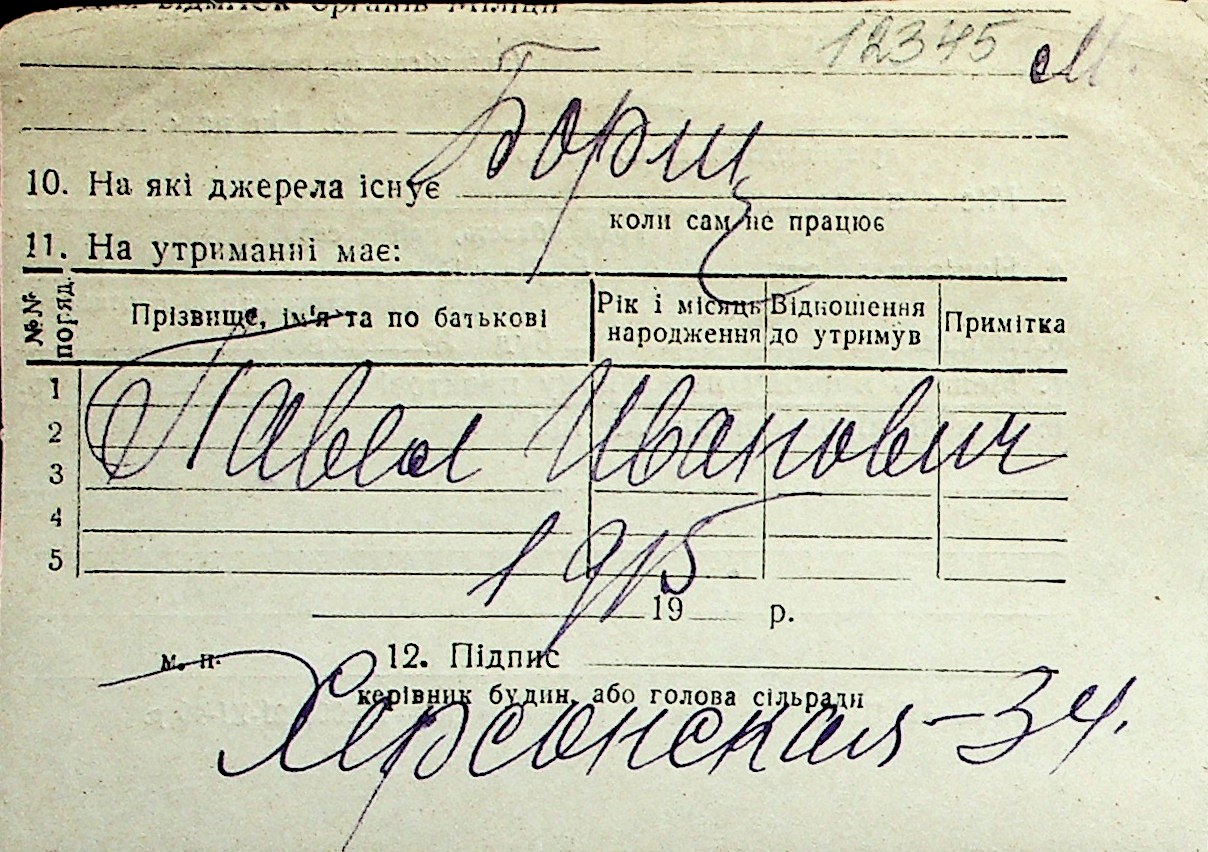 для відміток органів міліції
12345 М.
Борщ
10. На які джерела існує
коли сам не працює
11. На утриманні має:
№№ поряд.
Прізвище, ім'я та по батькові
Рік і місяць народження
Відношення до утримув
Примітка
1
2
3
4
5
Павел Иванович
1915
19 р.
м. п.
12. Підпис
керівник будин. або голова сільради
Херсонская-34.